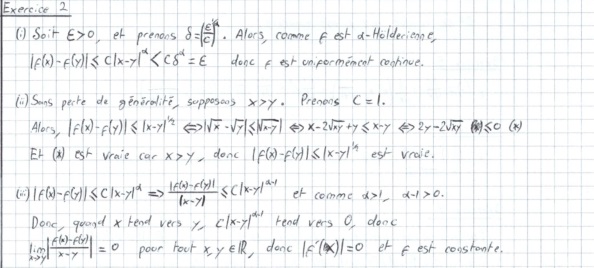 Exercice 2
(i) Soit ε>0, et prenons δ=(ε/C)^{1/α}. Alors, comme f est α-Hölderienne,
|f(x)-f(y)|≤C|x-y|^α<Cδ^α=ε donc f est uniformément continue.
(ii) Sans perte de généralité, supposons x>y. Prenons C=1.
Alors, |f(x)-f(y)|≤|x-y|^{1/2} ⟺ |√x-√y|≤|√x-y| ⟺ x-2√xy+y≤x-y ⟺ 2y-2√xy ≤0 (*)
Et (*) est vraie car x>y, donc |f(x)-f(y)|≤|x-y|^{1/2} est vraie.
(iii) |f(x)-f(y)|≤C|x-y|^α ⟹ |f(x)-f(y)|/|x-y| ≤C|x-y|^{α-1} et comme α>1, α-1>0.
Donc, quand x tend vers y, C|x-y|^{α-1} tend vers 0, donc
lim_{x→y} |f(x)-f(y)/x-y| = 0 pour tout x,y∈ℝ, donc |f'(x)|=0 et f est constante.